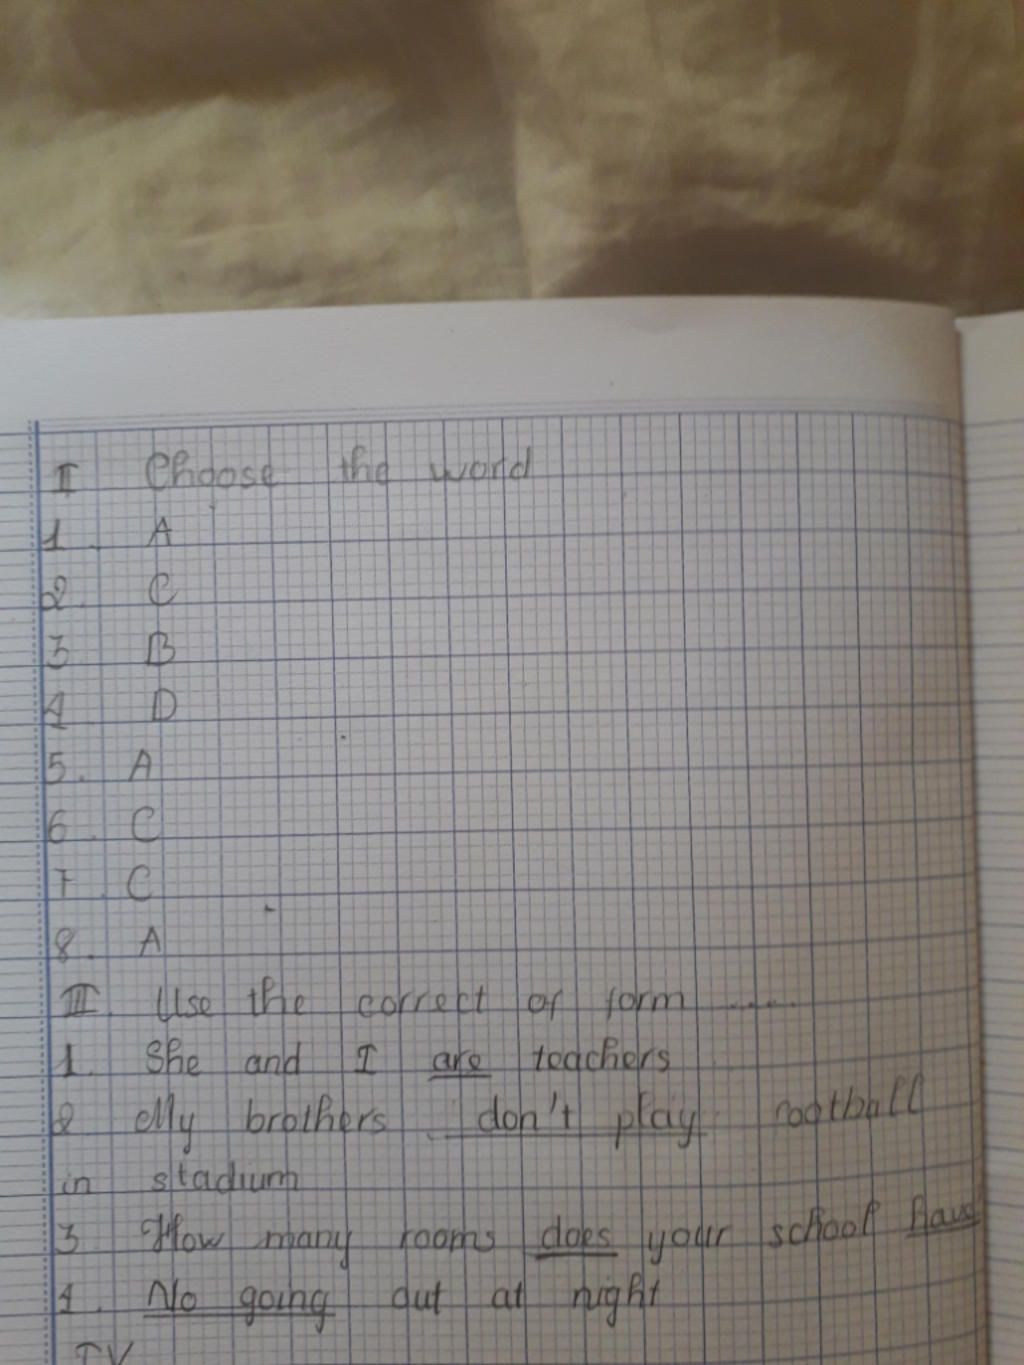 I Choose the word
1. A
2. C
3 B
4 D
5. A
6. C
7. C
8. A
III Use the correct of form ......
1. She and I are teachers
2 My brothers don't play football
in stadium
3 How many rooms does your school have
4. No going out at night
IV